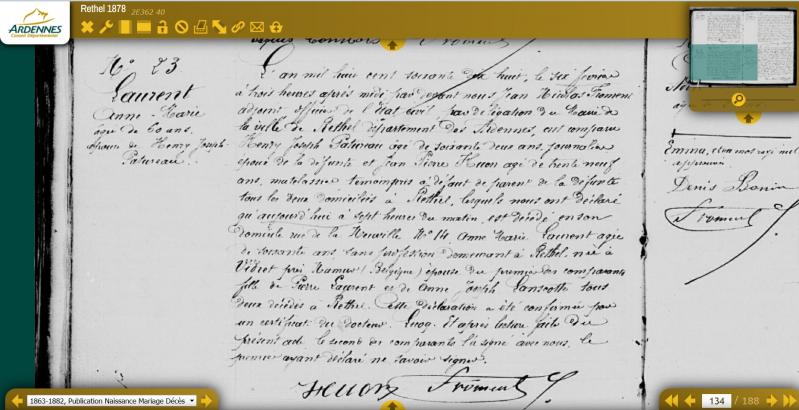 Rethel 1878 2E362 40
ARDENNES
Conseil Départemental
N° 23
Laurent
Anne-Marie
agée de 60 ans.
épouse de Henry Joseph
Patureau.
L'an mil huit cent soixante dix huit, le six février
à trois heures après midi par devant nous Jean Nicolas Froment
adjoint officier de l'état civil par délégation du Maire de
la ville de Rethel département des Ardennes, ont comparu
Henry Joseph Patureau âgé de soixante deux ans, journalier
époux de la défunte et Jean Pierre Huon agé de trente neuf
ans, matelassier témoins pris à défaut de parent de la défunte
tous les deux domiciliés à Rethel, lesquels nous ont déclaré
qu'aujourd'hui à sept heures du matin, est décédée en son
domicile rue de la Neuville N° 14 Anne Marie Laurent agée
de soixante ans, sans profession demeurant à Rethel née à
près Namur (Belgique) épouse du premier des comparants
fille de Pierre Laurent et de Anne Joseph tous
deux décédés à Rethel. Cette déclaration a été confirmée par
un certificat du docteur Et après lecture faite du
présent acte le second des comparants l'a signé avec nous, le
premier ayant déclaré ne savoir signer.
Huon Froment
approuvé
Denis Bonin
Froment
1863-1882, Publication Naissance Mariage Décès
134 / 188